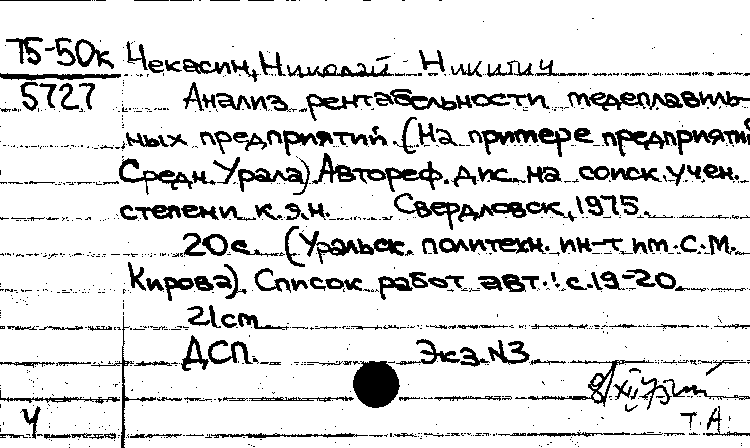 75-50к Чекасин, Николай Никитич
5727 Анализ рентабельности медеплавиль-
ных предприятий. (На примере предприятий
Средн. Урала). Автореф. дис. на соиск. учен.
степени к.э.н. Свердловск, 1975.
20с. (Уральск. политехн. ин-т им. С.М.
Кирова). Список работ авт.: с.19-20.
21cm
ДСП. Экз.N3.
Ч Т.А.